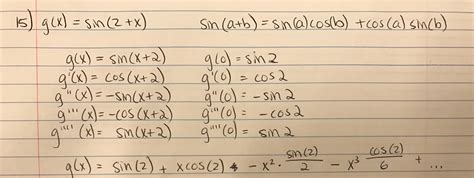 15) g(x) = sin(2+x) sin(a+b) = sin(a)cos(b) + cos(a) sin(b)
g(x) = sin(x+2) g(0) = sin 2
g'(x) = cos(x+2) g'(0) = cos 2
g''(x) = -sin(x+2) g''(0) = -sin 2
g'''(x) = -cos(x+2) g'''(0) = -cos 2
g''''(x) = sin(x+2) g''''(0) = sin 2
g(x) = sin(2) + xcos(2) - x² · sin(2)/2 - x³ cos(2)/6 + ...